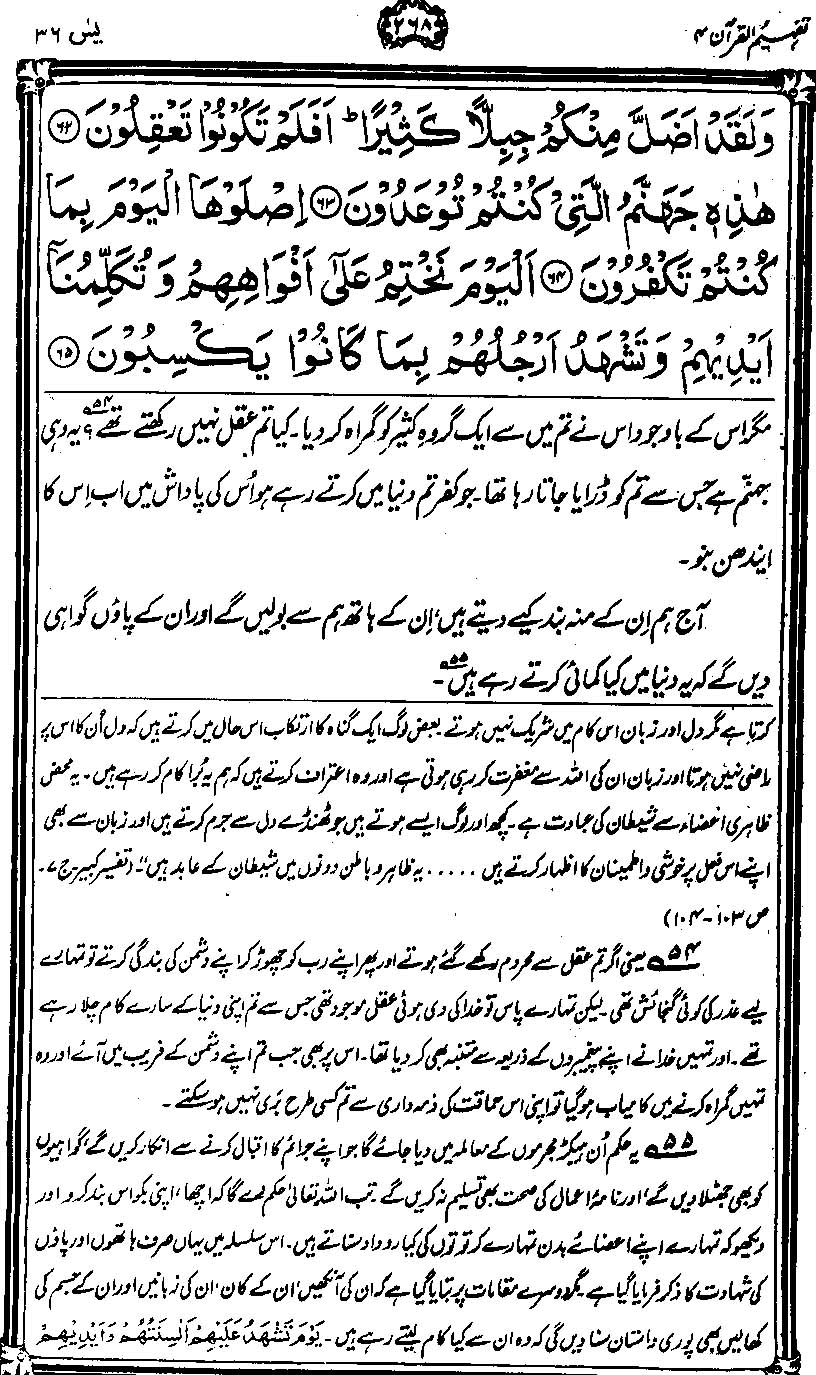 تفہیم القرآن ۴
۲۶۸
یٰسٓ ۳۶
وَلَقَدْ اَضَلَّ مِنْكُمْ جِبِلًّا كَثِيْرًا ؕ اَفَلَمْ تَكُوْنُوْا تَعْقِلُوْنَ ﴿۶۲﴾
هٰذِهٖ جَهَنَّمُ الَّتِيْ كُنْتُمْ تُوْعَدُوْنَ ﴿۶۳﴾ اِصْلَوْهَا الْيَوْمَ بِمَا
كُنْتُمْ تَكْفُرُوْنَ ﴿۶۴﴾ اَلْيَوْمَ نَخْتِمُ عَلٰۤى اَفْوَاهِهِمْ وَ تُكَلِّمُنَاۤ
اَيْدِيْهِمْ وَ تَشْهَدُ اَرْجُلُهُمْ بِمَا كَانُوْا يَكْسِبُوْنَ ﴿۶۵﴾
مگر اس کے باوجود اس نے تم میں سے ایک گروہِ کثیر کو گمراہ کر دیا۔ کیا تم عقل نہیں رکھتے تھے؟۵۴ یہ وہی
جہنّم ہے جس سے تم کو ڈرایا جاتا رہا تھا۔ جو کفر تم دنیا میں کرتے رہے ہو اُس کی پاداش میں اب اِس کا
ایندھن بنو۔
آج ہم اِن کے منہ بند کیے دیتے ہیں، اِن کے ہاتھ ہم سے بولیں گے اور ان کے پاؤں گواہی
دیں گے کہ یہ دنیا میں کیا کمائی کرتے رہے ہیں۵۵۔
کرتا ہے مگر دل اور زبان اس کام میں شریک نہیں ہوتے۔ بعض لوگ ایک گناہ کا ارتکاب اس حال میں کرتے ہیں کہ دل اُن کا اس پر
راضی نہیں ہوتا اور زبان ان کی اللہ سے مغفرت کر رہی ہوتی ہے اور وہ اعتراف کرتے ہیں کہ ہم یہ بُرا کام کر رہے ہیں۔ یہ محض
ظاہری اعضاء سے شیطان کی عبادت ہے۔ کچھ اور لوگ ایسے ہوتے ہیں جو ٹھنڈے دل سے جرم کرتے ہیں اور زبان سے بھی
اپنے اس فعل پر خوشی و اطمینان کا اظہار کرتے ہیں ..... یہ ظاہر و باطن دونوں میں شیطان کے عابد ہیں"۔ (تفسیر کبیر۔ ج ۷۔
ص ۱۰۳-۱۰۴)
۵۴ یعنی اگر تم عقل سے محروم رکھے گئے ہوتے اور پھر اپنے رب کو چھوڑ کر اپنے دشمن کی بندگی کرتے تو تمہارے
لیے عذر کی کوئی گنجائش تھی۔ لیکن تمہارے پاس تو خدا کی دی ہوئی عقل موجود تھی جس سے تم اپنی دنیا کے سارے کام چلا رہے
تھے۔ اور تمہیں خدا نے اپنے پیغمبروں کے ذریعہ سے متنبہ بھی کر دیا تھا۔ اس پر بھی جب تم اپنے دشمن کے فریب میں آئے اور وہ
تمہیں گمراہ کرنے میں کامیاب ہو گیا تو اپنی اس حماقت کی ذمہ داری سے تم کسی طرح بَری نہیں ہو سکتے۔
۵۵ یہ حکم اُن ہیکڑ مجرموں کے معاملہ میں دیا جائے گا جو اپنے جرائم کا اقبال کرنے سے انکار کریں گے، گواہیوں
کو بھی جھٹلا دیں گے، اور نامۂ اعمال کی صحت بھی تسلیم نہ کریں گے۔ تب اللہ تعالیٰ حکم دے گا کہ اچھا، اپنی بکواس بند کرو اور
دیکھو کہ تمہارے اپنے اعضائے بدن تمہارے کرتوتوں کی کیا روداد سناتے ہیں۔ اس سلسلہ میں یہاں صرف ہاتھوں اور پاؤں
کی شہادت کا ذکر فرمایا گیا ہے۔ مگر دوسرے مقامات پر بتایا گیا ہے کہ ان کی آنکھیں، ان کے کان، ان کی زبانیں اور ان کے جسم کی
کھالیں بھی پوری داستان سنا دیں گی کہ وہ ان سے کیا کام لیتے رہے ہیں۔ يَوْمَ تَشْهَدُ عَلَيْهِمْ اَلْسِنَتُهُمْ وَ اَيْدِيْهِمْ